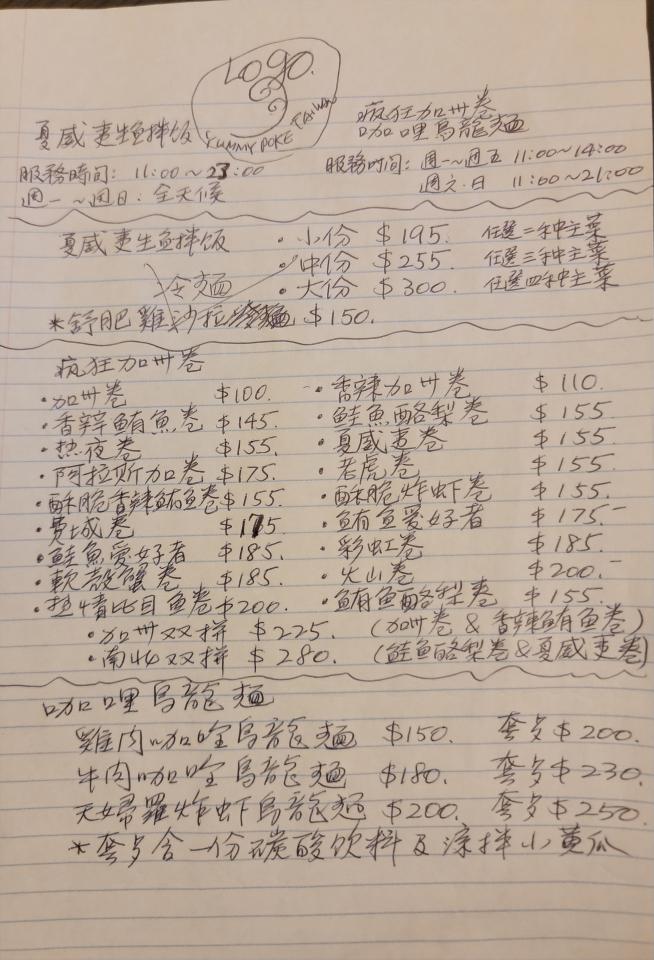 Logo.
YUMMY POKE TAIWAN
夏威夷生魚拌饭
服務時間: 11:00~23:00
週一~週日: 全天候
瘋狂加州卷
咖哩烏龍麵
服務时间: 週一~週五 11:00~14:00
週六.日 11:00~21:00
夏威夷生魚拌饭 ·小份 $195. 任選二种主菜
·中份 $255. 任選三种主菜
冷麵 ·大份 $300. 任選四种主菜
*舒肥雞沙拉 $150.
瘋狂加州卷
·加州卷 $100. ·香辣加州卷 $110.
·香辣鮪魚卷 $145. ·鮭魚酪梨卷 $155.
·热夜卷 $155. ·夏威夷卷 $155.
·阿拉斯加卷 $175. ·老虎卷 $155.
·酥脆香辣鮪魚卷 $155. ·酥脆炸虾卷 $155.
·費城卷 $175. ·鮪魚愛好者 $175.-
·鮭魚愛好者 $185. ·彩虹卷 $185.
·軟殼蟹卷 $185. ·火山卷 $200.-
·热情比目魚卷 $200. ·鮪魚酪梨卷 $155.
·加州双拼 $225. (加州卷 & 香辣鮪魚卷)
·南北双拼 $280. (鮭魚酪梨卷 & 夏威夷卷)
咖哩烏龍麵
雞肉咖哩烏龍麵 $150. 套多 $200.
牛肉咖哩烏龍麵 $180. 套多 $230.
天婦羅炸虾烏龍麵 $200. 套多 $250.
*套多含一份碳酸饮料及涼拌小黄瓜